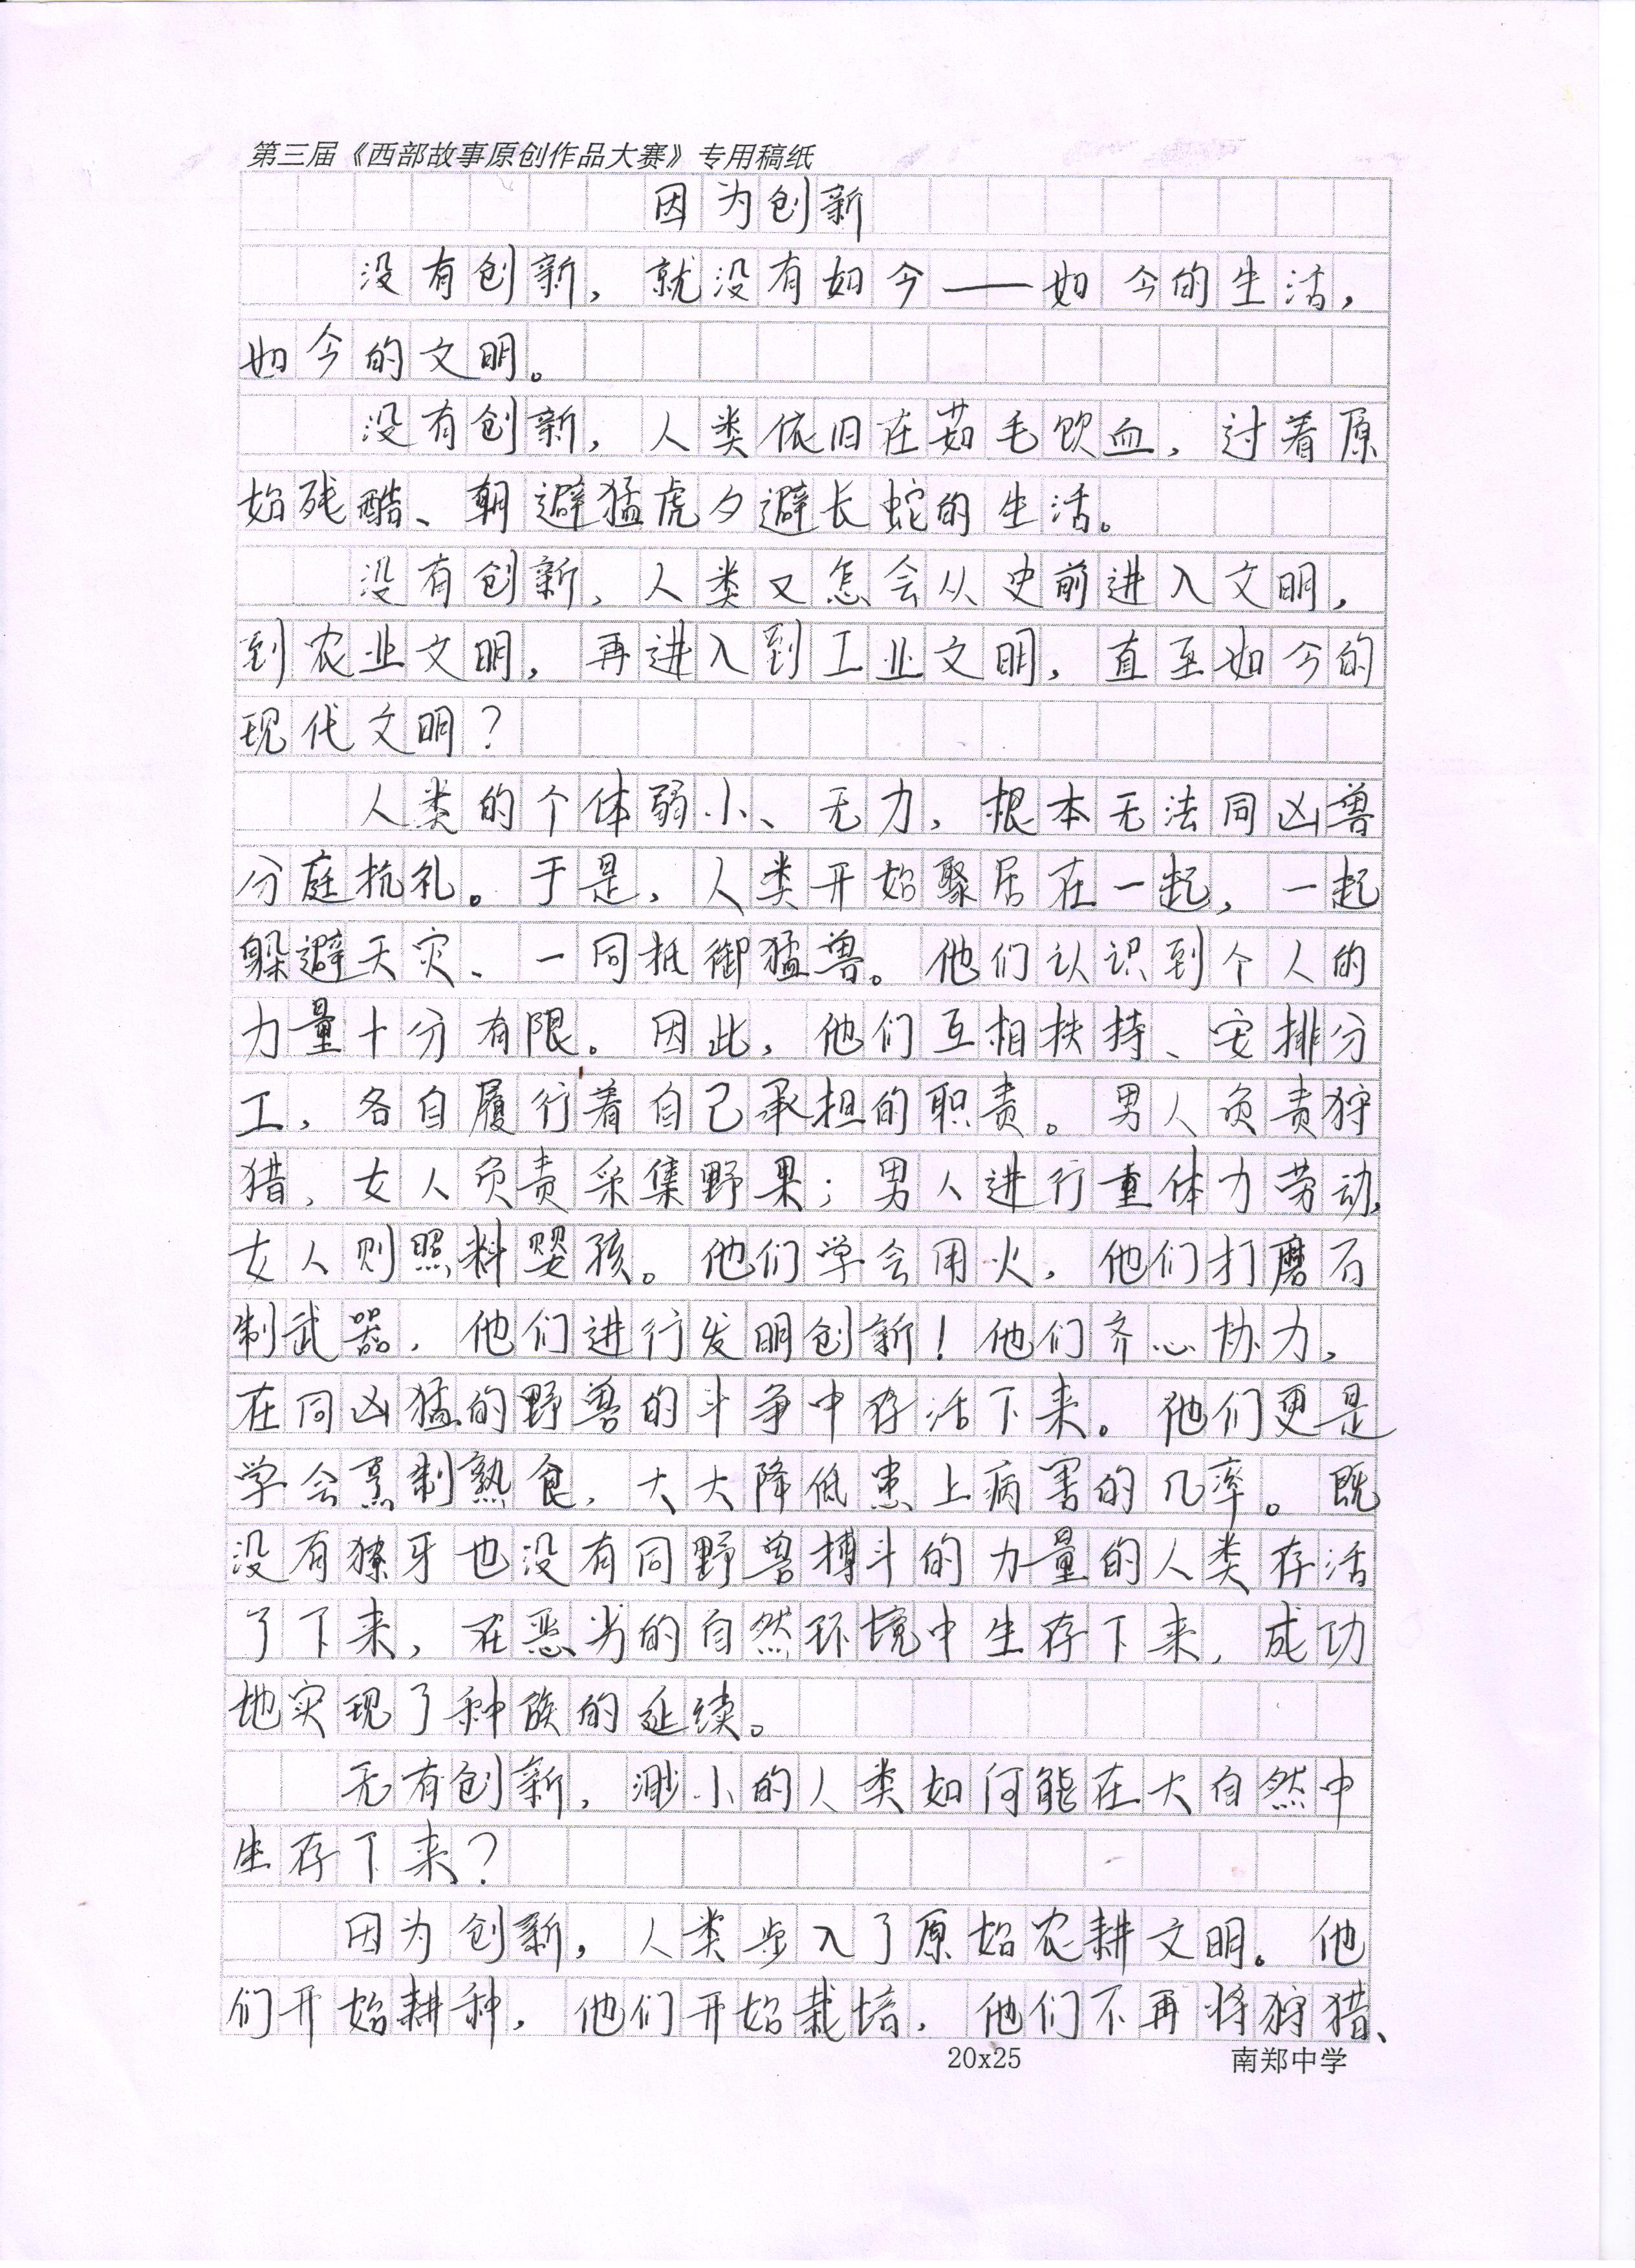 第三届《西部故事原创作品大赛》专用稿纸
因为创新
没有创新，就没有如今——如今的生活，
如今的文明。
没有创新，人类依旧在茹毛饮血，过着原
始残酷、朝避猛虎夕避长蛇的生活。
没有创新，人类又怎会从史前进入文明，
到农业文明，再进入到工业文明，直至如今的
现代文明？
人类的个体弱小、无力，根本无法同凶兽
分庭抗礼。于是，人类开始聚居在一起，一起
躲避天灾、一同抵御猛兽。他们认识到个人的
力量十分有限。因此，他们互相扶持、安排分
工，各自履行着自己承担的职责。男人负责狩
猎，女人负责采集野果；男人进行重体力劳动，
女人则照料婴孩。他们学会用火，他们打磨石
制武器，他们进行发明创新！他们齐心协力，
在同凶猛的野兽的斗争中存活下来。他们更是
学会烹制熟食，大大降低患上病害的几率。既
没有獠牙也没有同野兽搏斗的力量的人类存活
了下来，在恶劣的自然环境中生存下来，成功
地实现了种族的延续。
无有创新，渺小的人类如何能在大自然中
生存下来？
因为创新，人类步入了原始农耕文明。他
们开始耕种，他们开始栽培，他们不再将狩猎、
20x25 南郑中学